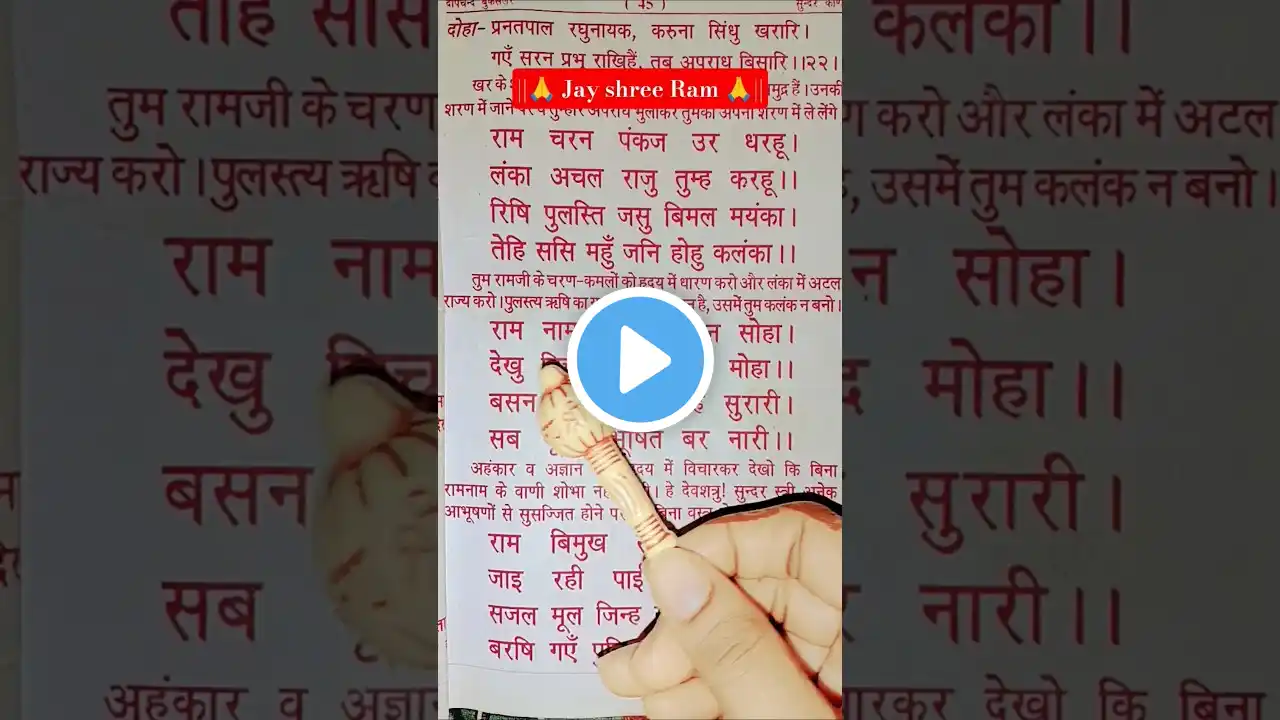 दीपचन्द बुकसेलर ( 45 ) सुन्दर काण
दोहा- प्रनतपाल रघुनायक, करुना सिंधु खरारि।
गएँ सरन प्रभु राखिहैं, तब अपराध बिसारि।।२२।
|| 🙏 Jay shree Ram 🙏 ||
खर के मुद्र हैं। उनकी
शरण में जाने पर वे तुम्हारे अपराध भुलाकर तुमको अपनी शरण में ले लेंगे
राम चरन पंकज उर धरहू।
लंका अचल राजु तुम्ह करहू।।
रिषि पुलस्ति जसु बिमल मयंका।
तेहि ससि महुँ जनि होहु कलंका।।
तुम रामजी के चरण-कमलों को हृदय में धारण करो और लंका में अटल
राज्य करो। पुलस्त्य ऋषि का न है, उसमें तुम कलंक न बनो।
राम नाम न सोहा।
देखु मोहा।।
बसन सुरारी।
सब भूषित बर नारी।।
अहंकार व अज्ञान हृदय में विचारकर देखो कि बिना
रामनाम के वाणी शोभा हे देवशत्रु! सुन्दर स्त्री अनेक
आभूषणों से सुसज्जित होने पर बिना वस्त्र
राम बिमुख
जाइ रही पाई
सजल मूल जिन्ह
बरषि गएँ